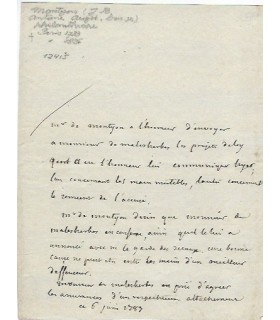 Montyon (J. B.
Antoine Auget, Baron de)
philanthrope
Paris 1733
+ 1820
mr de montyon a l'honneur d'envoyer
a monsieur de malesherbes les projets de loy
quil a eu l'honneur de lui communiquer
l'un concernant les main mortables, l'autre concernant
le serment de l'accusé.
mr de montyon desire que monsieur de
malesherbes en confere ainsi quil le lui a
annoncé avec mr le garde des sceaux une bonne
cause ne peut etre entre les mains d'un meilleur
deffenseur.
monsieur de malesherbes est prié d'agréer
les assurances d'un respectueux attachement
ce 6 juin 1787